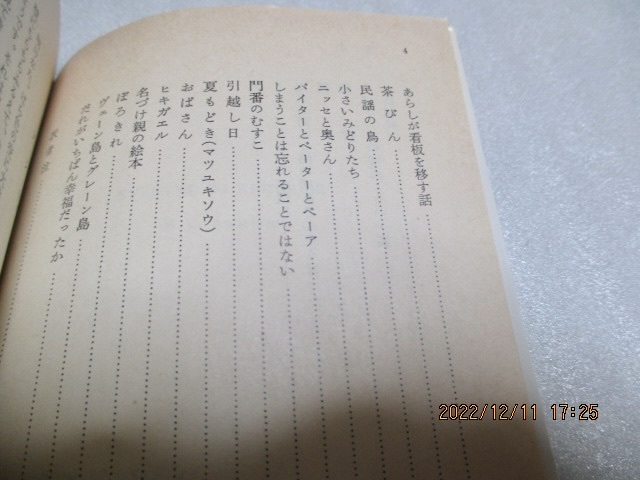 4
あらしが看板を移す話
茶びん
民謡の鳥
小さいみどりたち
ニッセと奥さん
パイターとペーターとペーア
しまうことは忘れることではない
門番のむすこ
引越し日
夏もどき(マツユキソウ)
おばさん
ヒキガエル
名づけ親の絵本
ぼろきれ
ヴェーン島とグレーン島
だれがいちばん幸福だったか
2022/12/11 17:25